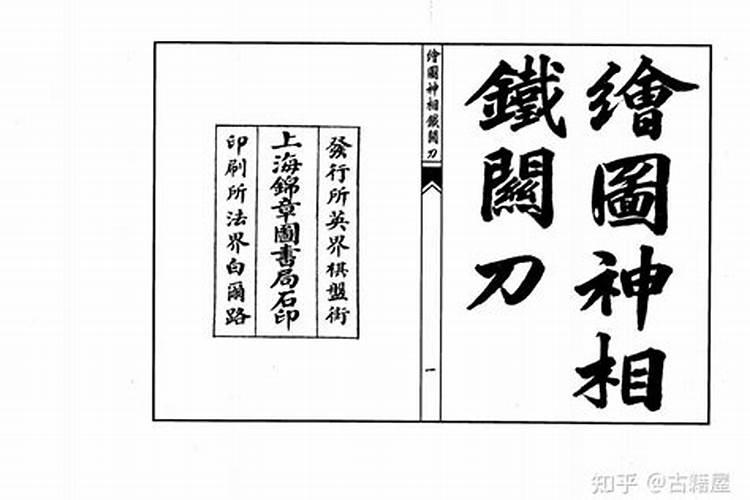 繪圖神相
鐵關刀
繪圖神相鐵關刀
一
發行所英界棋盤街
上海錦章圖書局石印
印刷所法界白爾路
知乎 @古籍屋